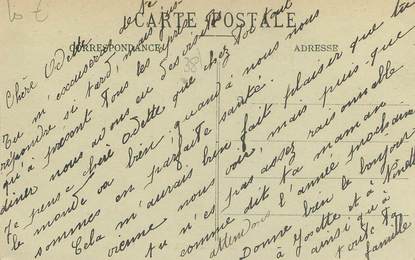 10 F
CARTE POSTALE
CORRESPONDANCE
ADRESSE
Chère Odette
Tu m'excuseras de te
répondre si tard, mais jus-
qu'à présent tous les après
dîner nous avons eu des visites
Je pense chère Odette que chez toi tout
le monde va bien quand à nous nous
sommes en parfaite santé.
Cela m'aurais bien fait plaisir que tu
vienne nous voir, mais puis-que
tu n'es pas assez raisonnable
comme dit ta maman
attendons l'année prochaine
Donne bien le bonjour
à Josette et à
ainsi qu'à
toute ta
famille